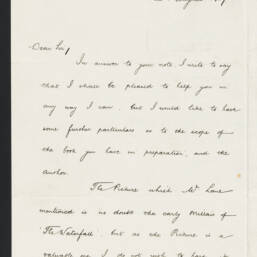 Dear Sir,
In answer to your note, I write to say
that I shall be pleased to help you in
any way I can, but I would like to have
some further particulars as to the scope of
the book you have in preparation, and the
author.
The Picture which Mr Lane
mentioned is no doubt the early Millais of
"The Waterfall", but as the Picture is a
valuable one I do not wish to have it